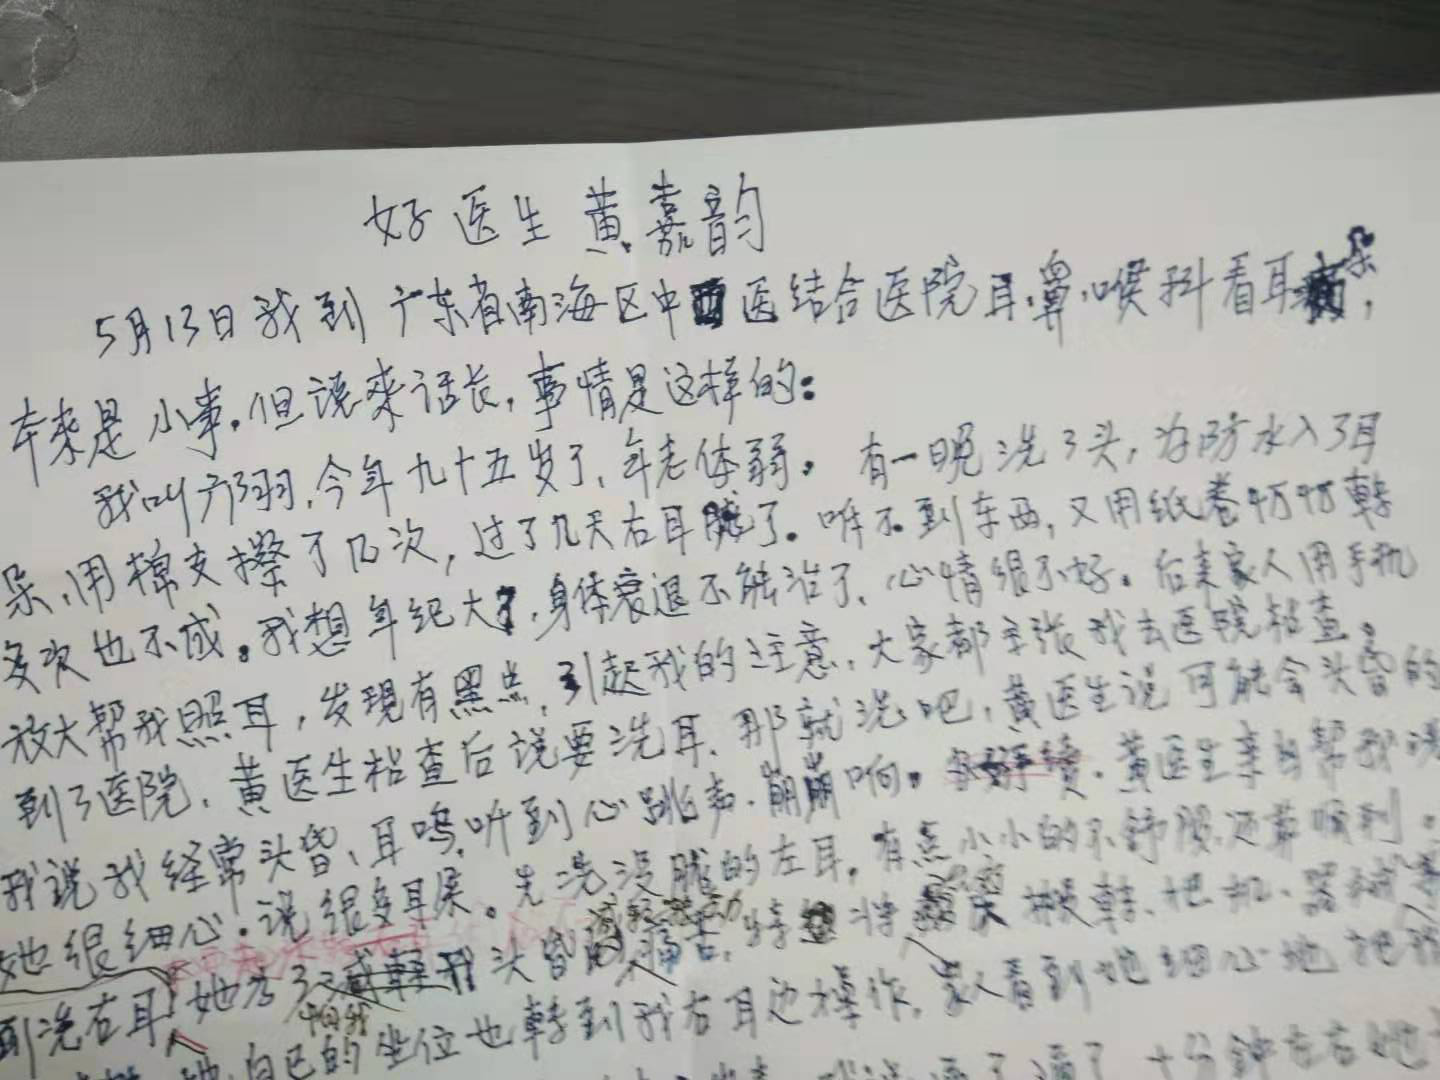 好医生 黄嘉韵
5月13日我到广东省南海区中西医结合医院耳.鼻.喉科看耳朵,
本来是小事.但说来话长,事情是这样的:
我叫邝羽,今年九十五岁了,年老体弱。有一晚洗了头,为防水入了耳
朵,用棉支擦了几次,过了几天右耳聋了.听不到东西,又用纸卷转
多次也不成。我想年纪大了,身体衰退不能治了、心情很不好。后来家人用手机
放大帮我照耳,发现有黑点,引起我的注意,大家都主张我去医院检查。
到了医院,黄医生检查后说要洗耳、那就洗吧,黄医生说可能会头昏的
我说我经常头昏、耳鸣,听到心跳声.崩崩响。黄医生亲自帮我洗
她很细心.说很多耳屎。先洗没聋的左耳,有点小小的不舒服,还算顺利。
到洗右耳,她为了怕我头昏减轻痛苦,特将搬转、把机、器械
她自己的坐位也转到我右耳边操作,家人看到她细心地把我
十分钟左右她